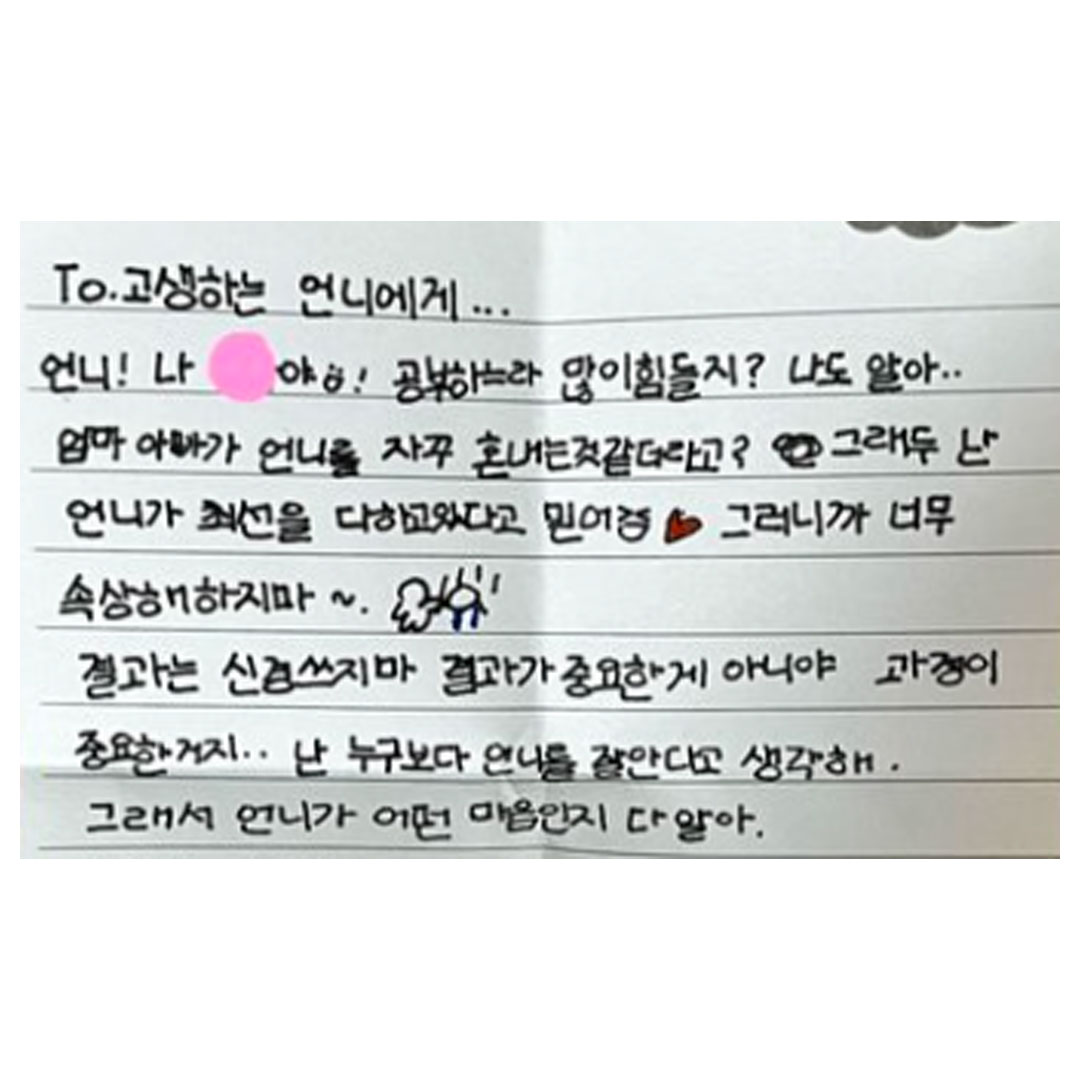 To.고생하는 언니에게...
언니! 나 야! 공부하느라 많이힘들지? 나도 알아..
엄마 아빠가 언니를 자꾸 혼내는것같더라고? 그래두 난
언니가 최선을 다하고있다고 믿어 그러니까 너무
속상해하지마 ~.
결과는 신경쓰지마 결과가 중요한게 아니야 과정이
중요한거지.. 난 누구보다 언니를 잘안다고 생각해.
그래서 언니가 어떤 마음인지 다 알아.